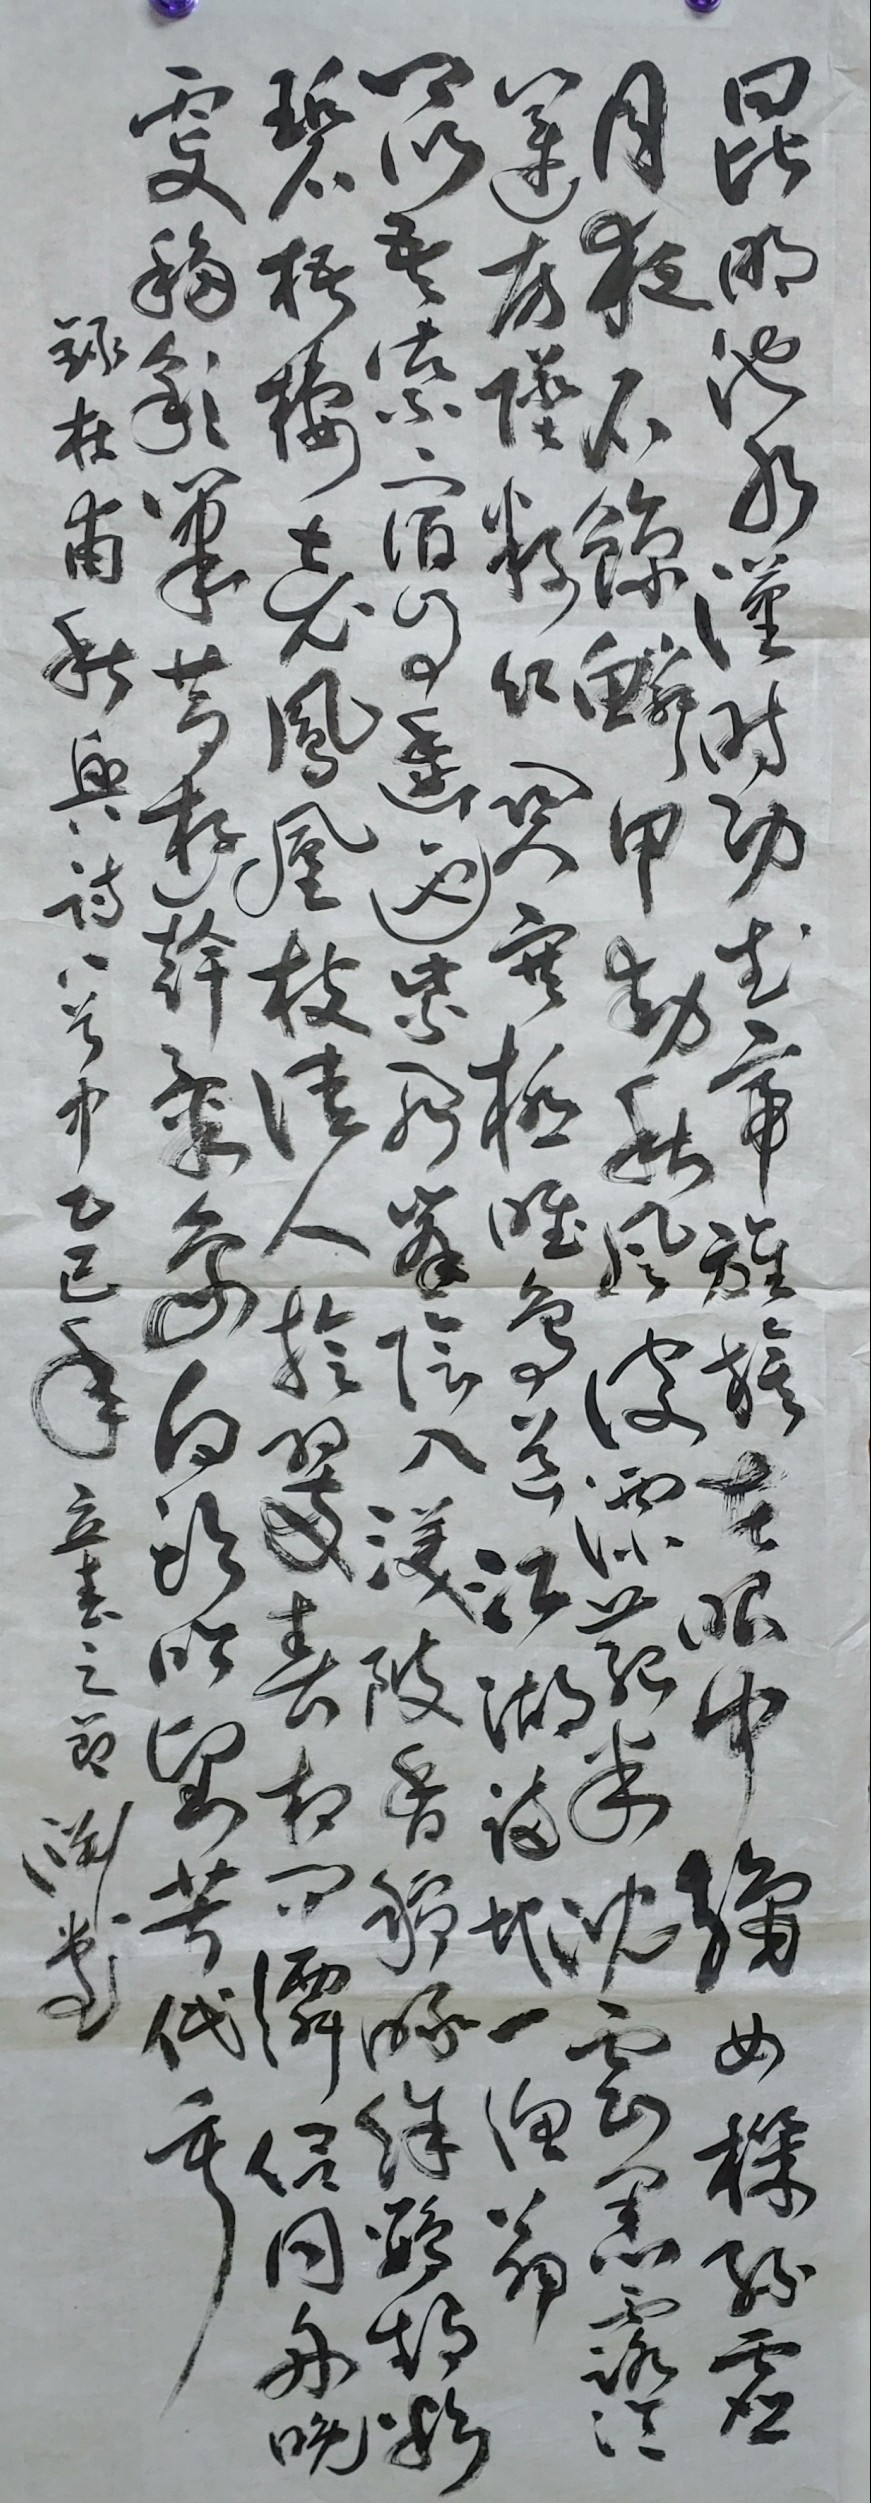 昆明池水漢時功武帝旌旗在眼中織女機絲虛
月夜石鯨鱗甲動秋風波漂菰米沈雲黑露冷
蓮房墜粉紅關塞極唯鳥道江湖滿地一漁翁
昆吾御宿自逶迤紫閣峯陰入渼陂香稻啄餘鸚鵡粒
碧梧棲老鳳凰枝佳人拾翠春相問僊侶同舟晚
更移彩筆昔遊幹氣象白頭吟望苦低垂
錄杜甫秋興詩八首中乙巳年立春之節